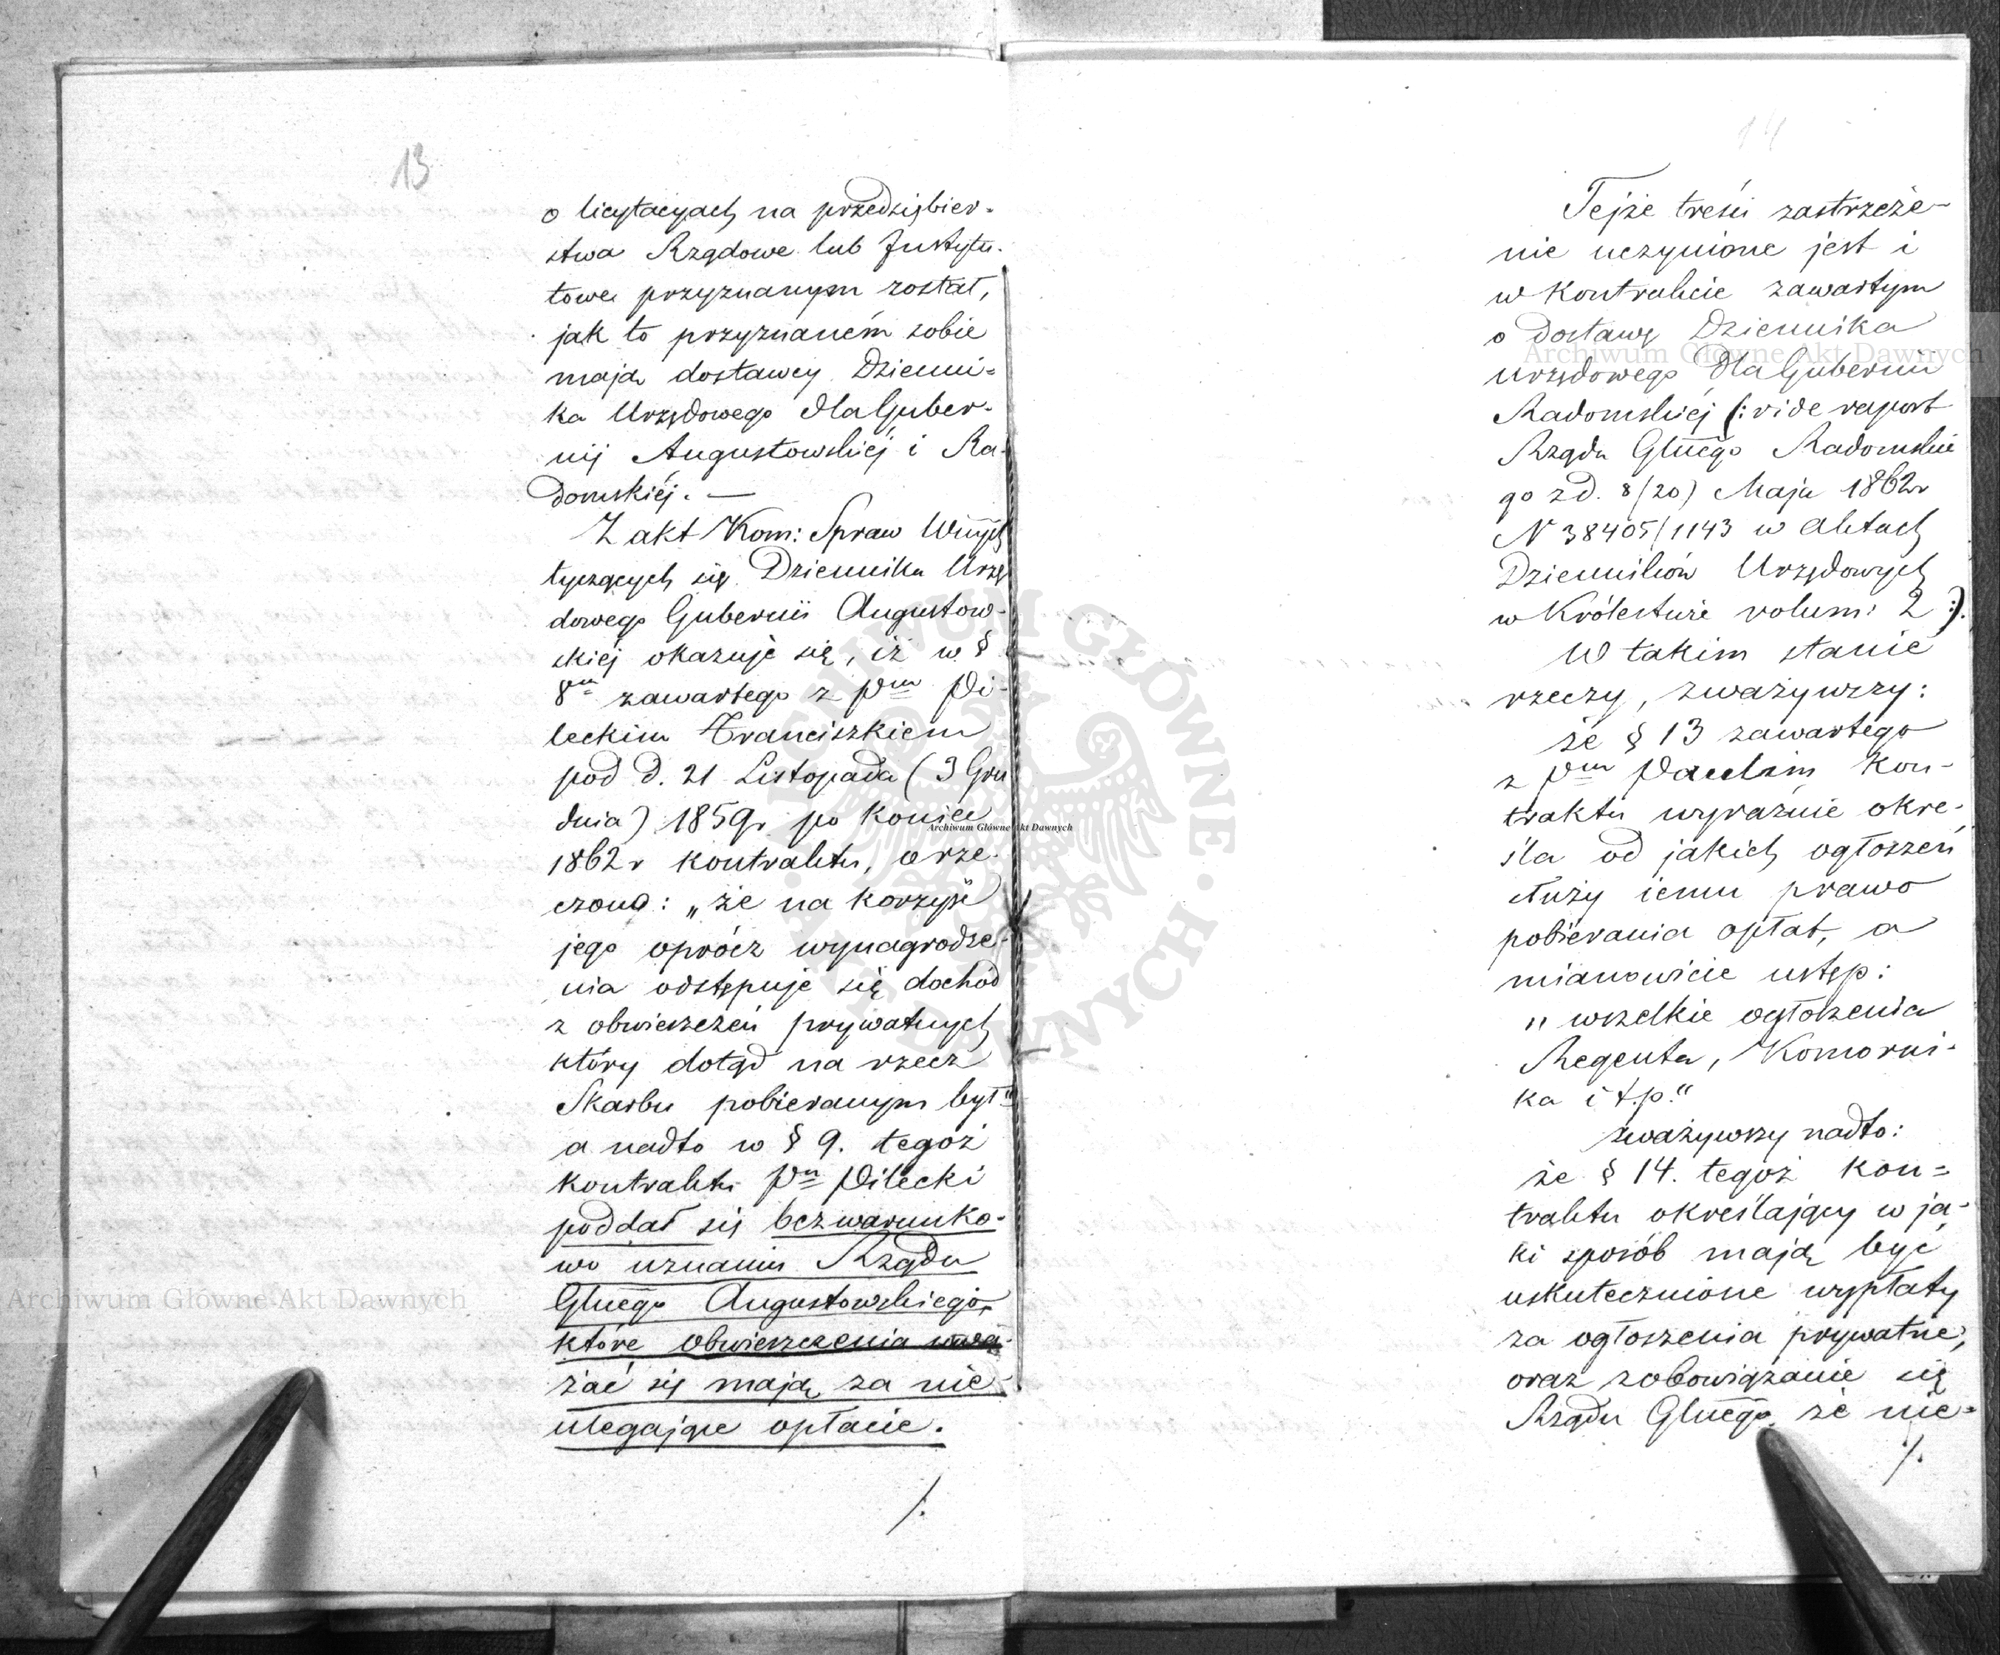 13
o licytacyach na przedsiębier-
stwa Rządowe lub Instytu-
towe przyznanym został,
jak to przyznaném sobie
mają dostawcy Dzienni-
ka Urzędowego dla Guber-
nij Augustowskiéj i Ra-
domskiéj. —
Z akt Kom: Spraw Wnych
tyczących się Dziennika Urzę
dowego Gubernii Augustow-
skiéj okazuje się, iż w §
8m zawartego z Pm Pi-
leckim Franciszkiem
pod d. 21 Listopada (3 Gru
dnia) 1859r po koniec
1862r kontraktu, orze-
czono: „że na korzyść
jego oprócz wynagrodze-
nia odstępuje się dochód
z obwieszczeń prywatnych
który dotąd na rzecz
Skarbu pobieranym był"
a nadto w § 9. tegoż
kontraktu Pn Pilecki
poddał się bezwarunko-
wo uznaniu Rządu
Glnego Augustowskiego,
które obwieszczenia uwa-
żać się mają za nie-
ulegające opłacie.
/.
14
Tejże treści zastrzeże-
nie uczynione jest i
w kontrakcie zawartym
o dostawę Dziennika
Urzędowego dla Gubernii
Radomskiéj (: vide raport
Rządu Glnego Radomskie
go z d. 8/20) Maja 1862r
N 38405/1143 w aktach
Dzienników Urzędowych
w Królestwie volum: 2 :).
W takim stanie
rzeczy, zważywszy:
że § 13 zawartego
z Pm Paulim kon-
traktu wyraźnie okre-
śla od jakich ogłoszeń
służy iemu prawo
pobierania opłat, a
mianowicie ustęp:
„ wszelkie ogłoszenia
Regenta, Komorni-
ka i t.p."
zważywszy nadto:
że § 14. tegoż kon-
traktu określający w ja-
ki sposób mają być
uskutecznione wypłaty
za ogłoszenia prywatne,
oraz zobowiązanie się
Rządu Glnego, że nie-
/.
Archiwum Główne Akt Dawnych
Archiwum Główne Akt Dawnych
Archiwum Główne Akt Dawnych
ARCHIWUM GŁÓWNE AKT DAWNYCH